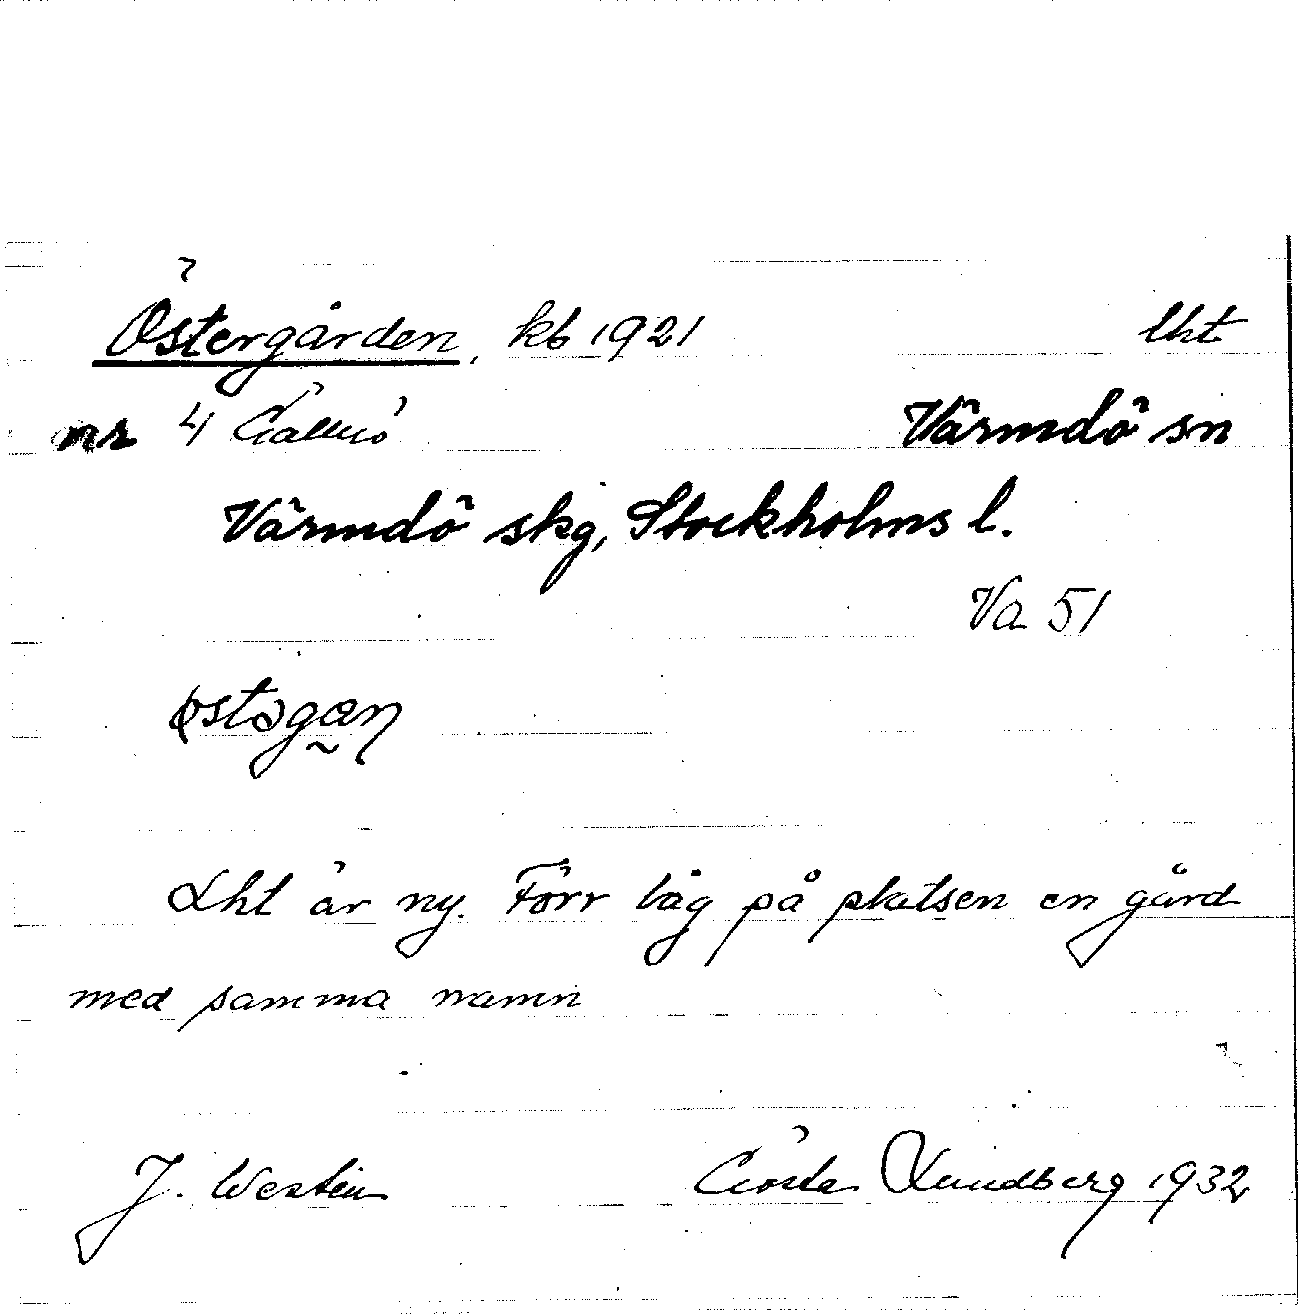 Östergården, kb 1921 lht
nr 4 Gällnö Värmdö sn
Värmdö skg, Stockholms l.
Va 51
østəgaṇ
Lht är ny. Förr låg på platsen en gård
med samma namn
J. Westin Gösta Lundberg 1932